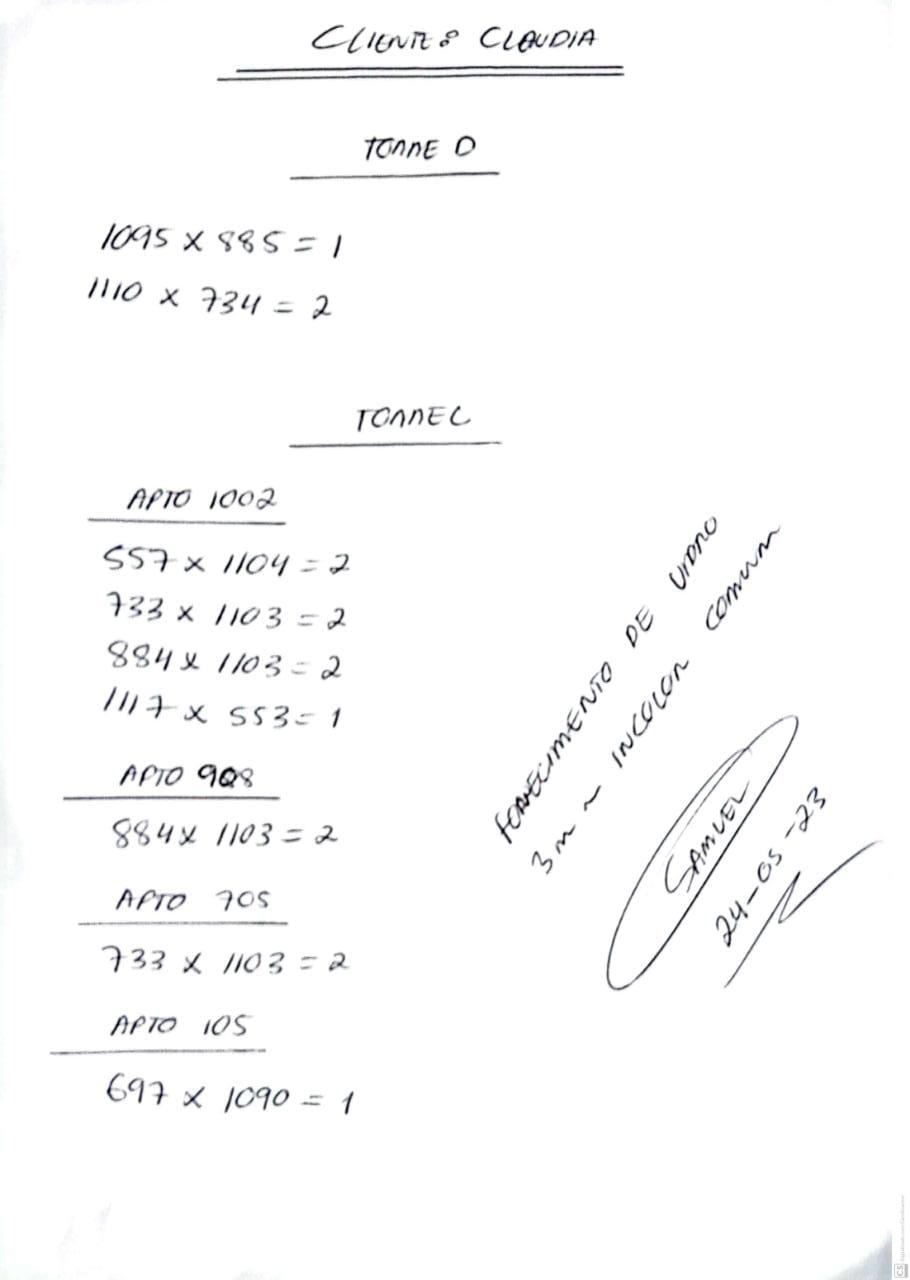 CLIENTE: CLAUDIA
TORRE D
1095 x 885 = 1
1110 x 734 = 2
TORRE C
APTO 1002
557 x 1104 = 2
733 x 1103 = 2
884 x 1103 = 2
1117 x 553 = 1
APTO 908
884 x 1103 = 2
APTO 705
733 x 1103 = 2
APTO 105
697 x 1090 = 1
FORNECIMENTO DE VIDRO
3mm INCOLOR COMUM
SAMUEL
24-05-23
CS